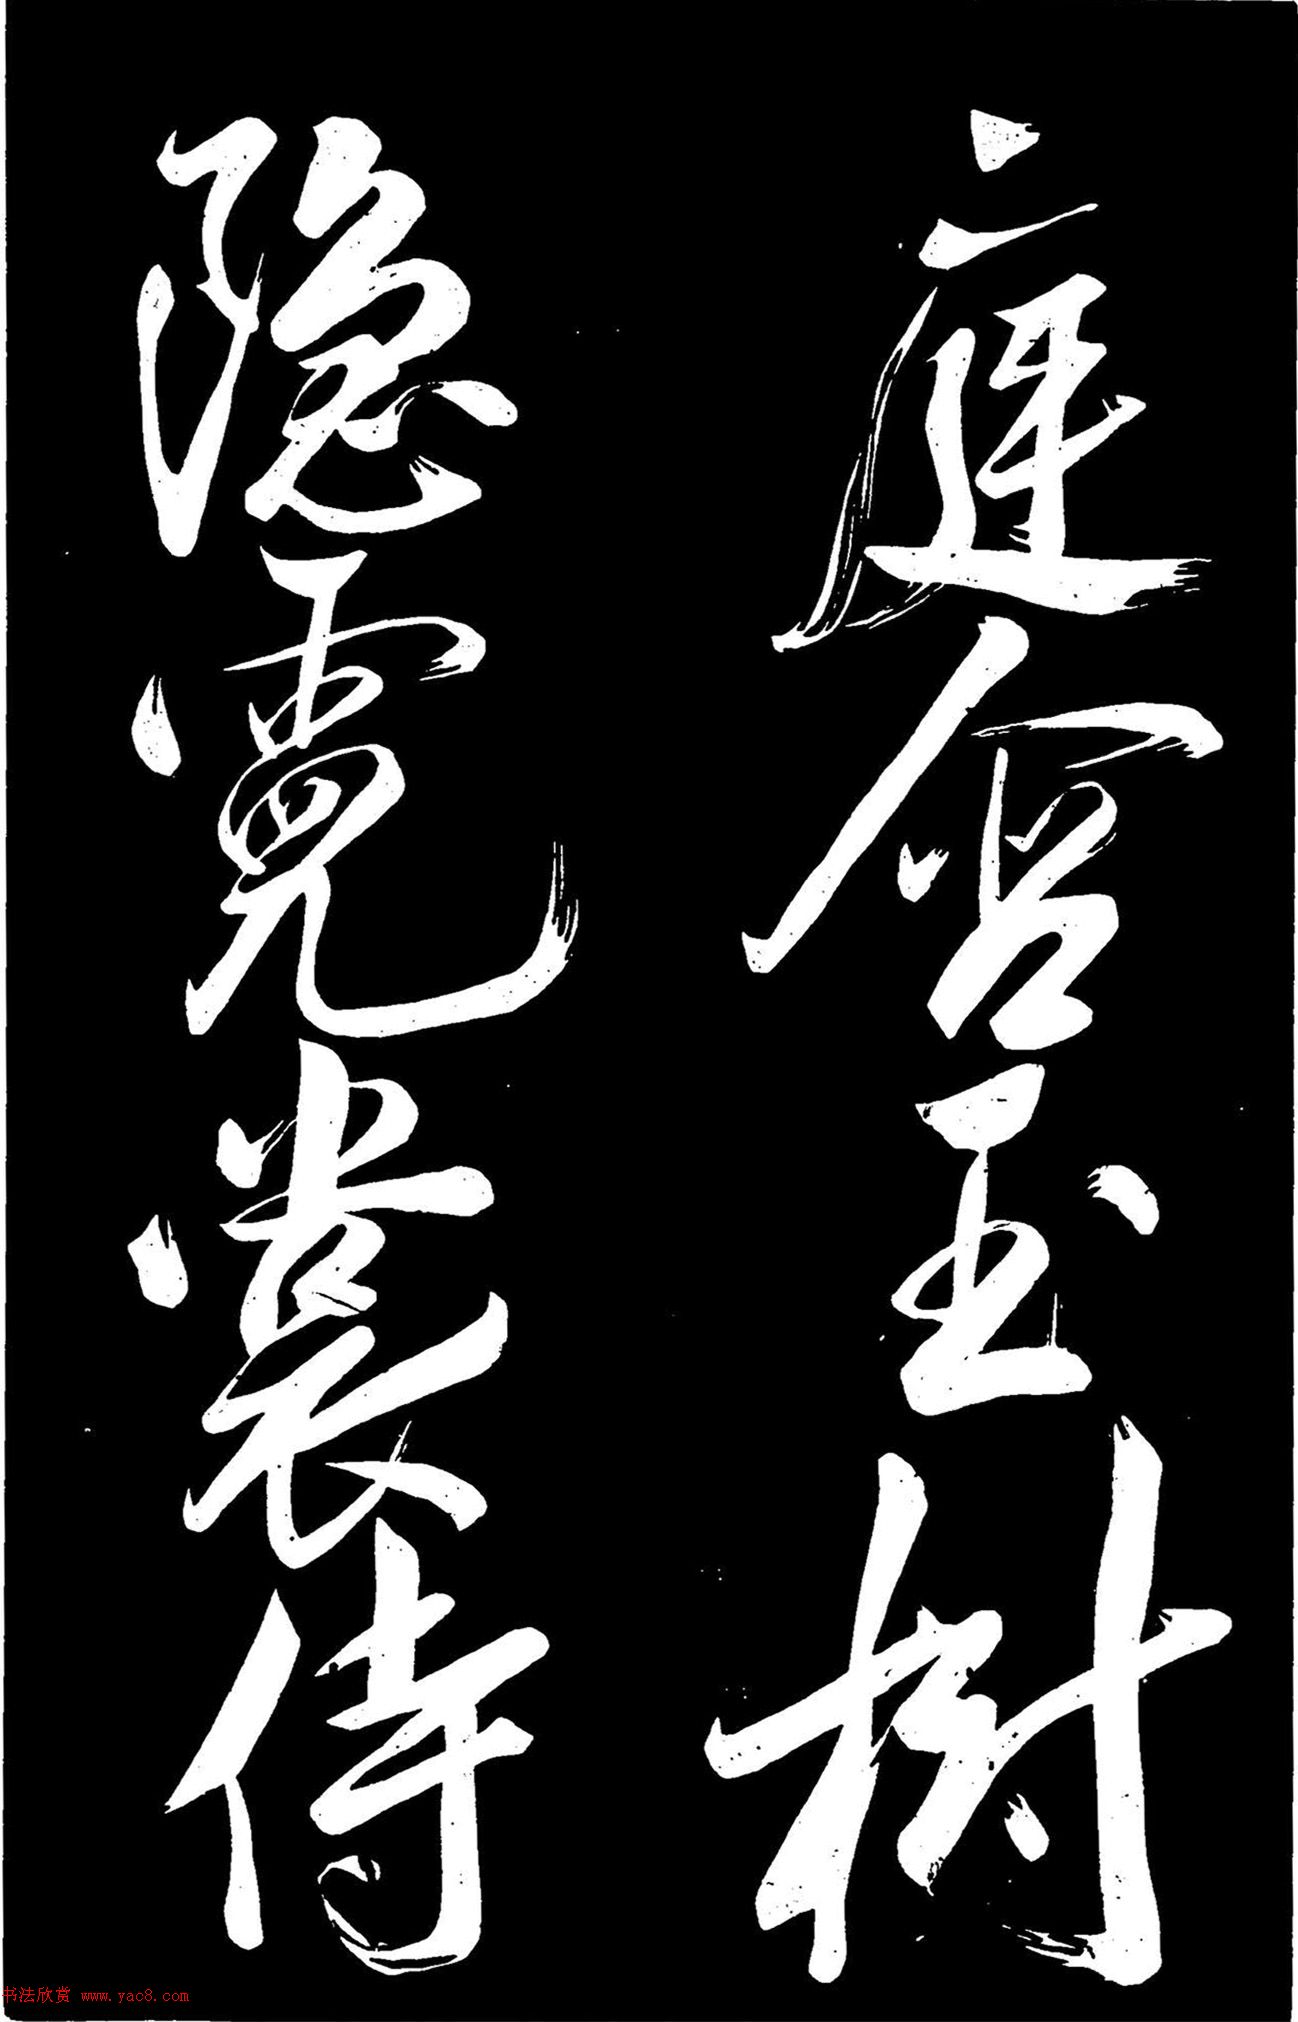 庭含玉樹
隱霓裳侍
书法欣赏 www.yac8.com